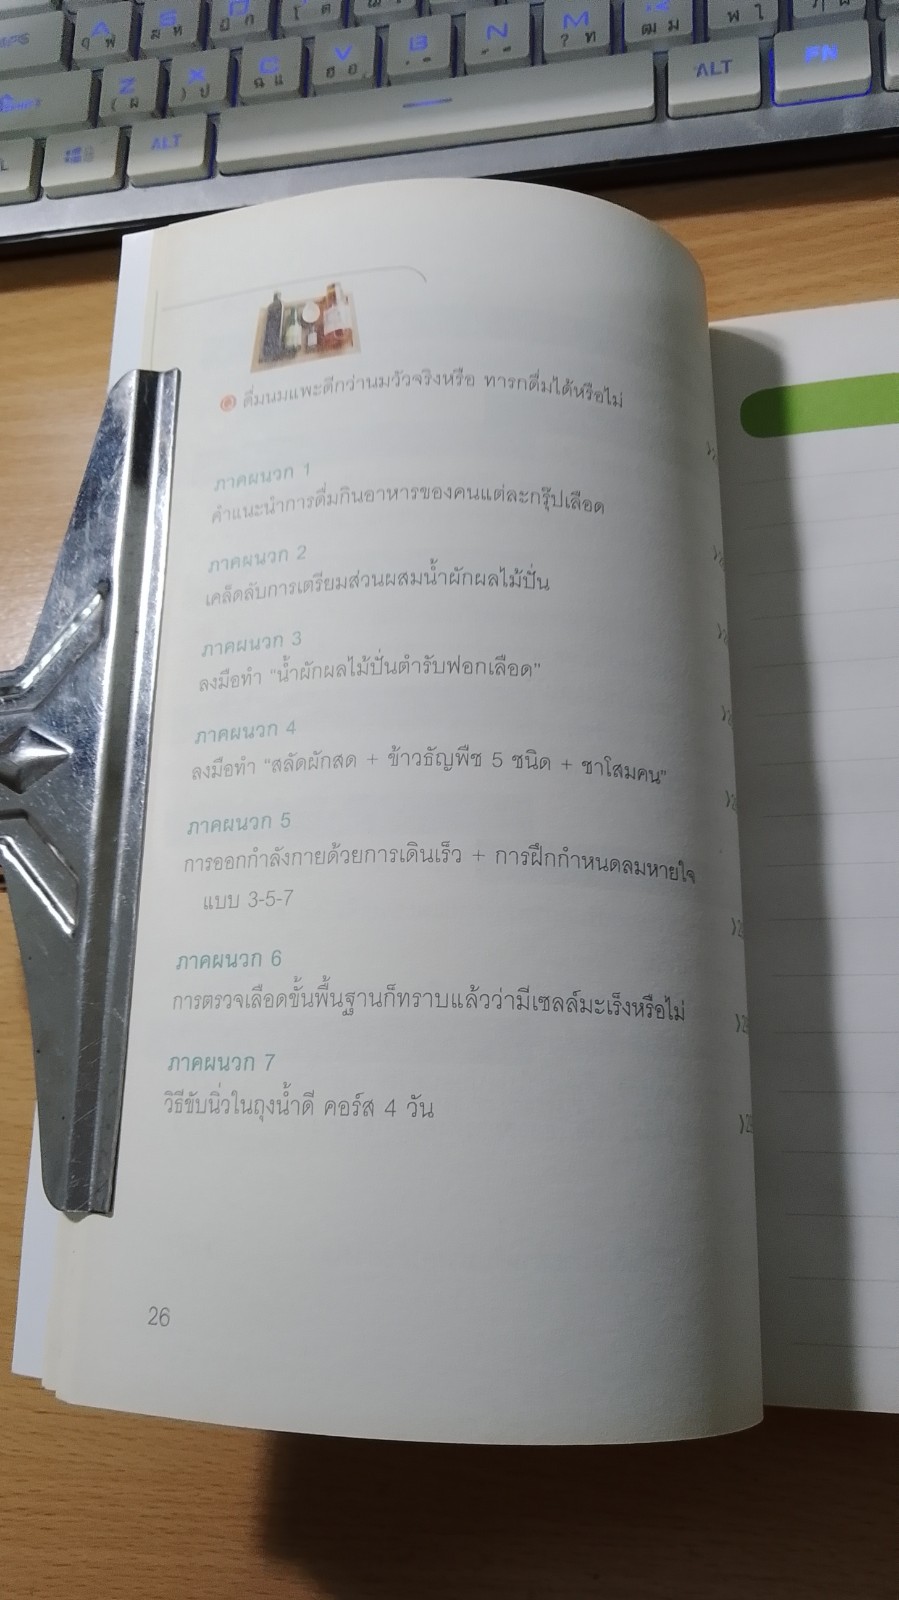 ดื่มนมแพะดีกว่านมวัวจริงหรือ ทารกดื่มได้หรือไม่
ภาคผนวก 1
คำแนะนำการดื่มกินอาหารของคนแต่ละกรุ๊ปเลือด
ภาคผนวก 2
เคล็ดลับการเตรียมส่วนผสมน้ำผักผลไม้ปั่น
ภาคผนวก 3
ลงมือทำ "น้ำผักผลไม้ปั่นตำรับฟอกเลือด"
ภาคผนวก 4
ลงมือทำ "สลัดผักสด + ข้าวธัญพืช 5 ชนิด + ชาโสมคน"
ภาคผนวก 5
การออกกำลังกายด้วยการเดินเร็ว + การฝึกกำหนดลมหายใจ
แบบ 3-5-7
ภาคผนวก 6
การตรวจเลือดขั้นพื้นฐานก็ทราบแล้วว่ามีเซลล์มะเร็งหรือไม่
ภาคผนวก 7
วิธีขับนิ่วในถุงน้ำดี คอร์ส 4 วัน
26